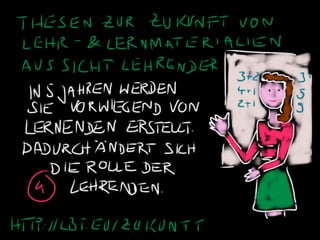 THESEN ZUR ZUKUNFT VON
LEHR- & LERNMATERIALIEN
AUS SICHT LEHRENDER
IN 5 JAHREN WERDEN
SIE VORWIEGEND VON
LERNENDEN ERSTELLT.
DADURCH ÄNDERT SICH
DIE ROLLE DER
4 LEHRENDEN.
3+2
4+1
2+1
3
5
9
HTTP://L3T.EU/ZUKUNFT